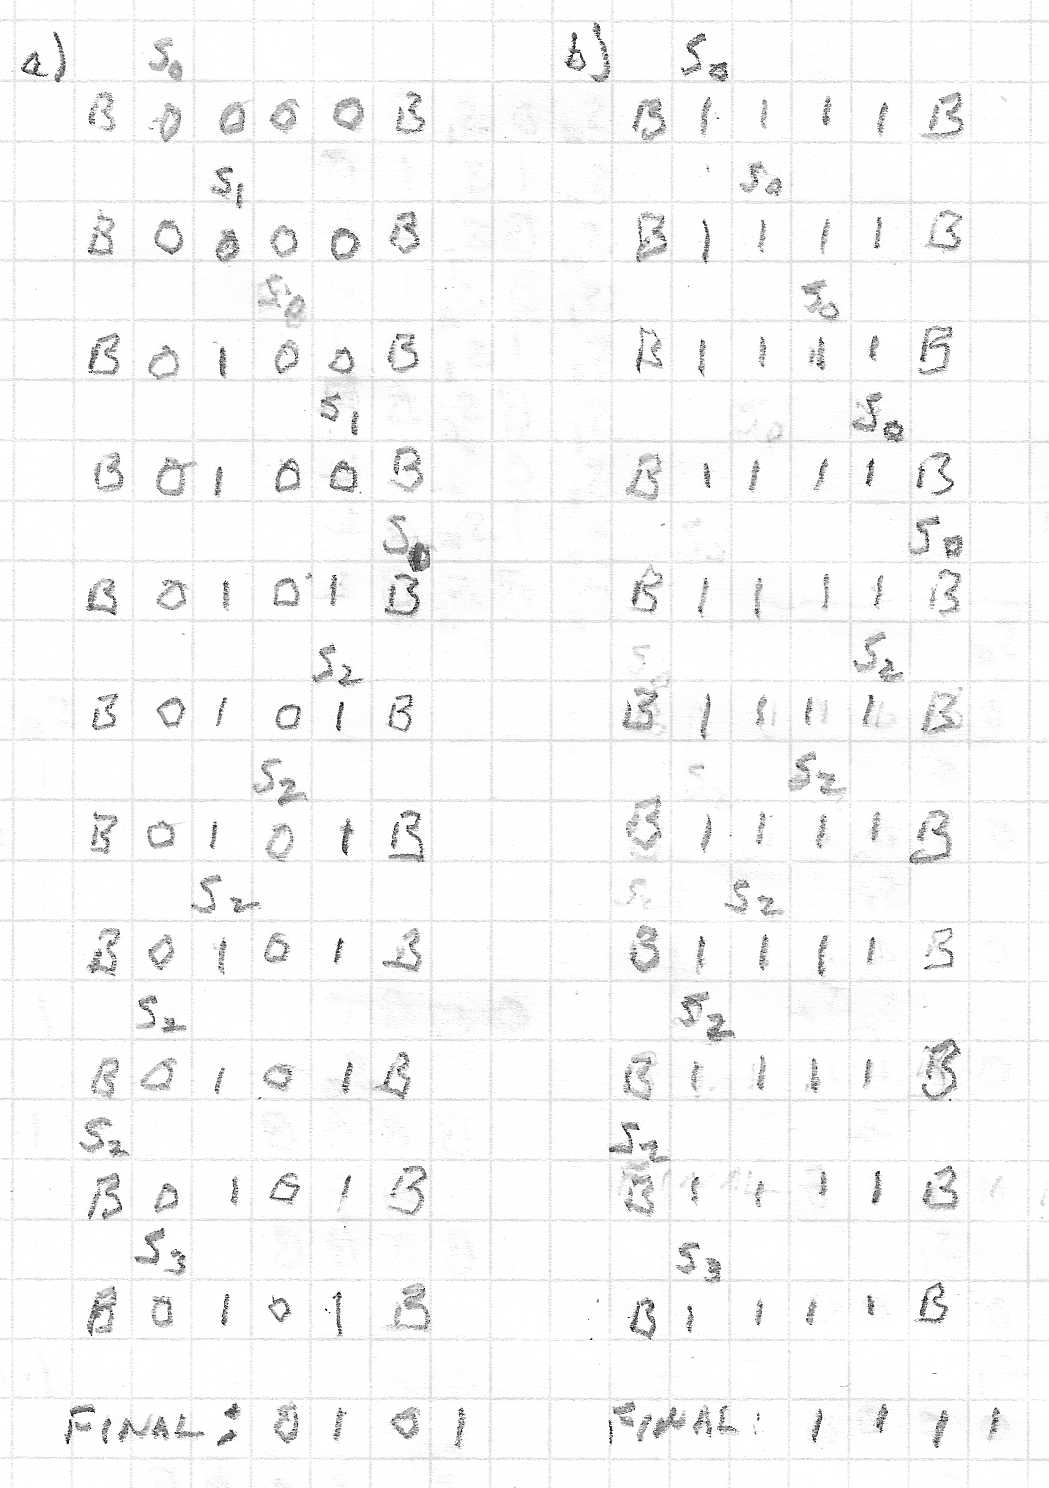 a) S₀
B 0 0 0 0 B
S₁
B 0 0 0 0 B
S₀
B 0 1 0 0 B
S₁
B 0 1 0 0 B
S₀
B 0 1 0 1 B
S₂
B 0 1 0 1 B
S₂
B 0 1 0 1 B
S₂
B 0 1 0 1 B
S₂
B 0 1 0 1 B
S₂
B 0 1 0 1 B
S₃
B 0 1 0 1 B
FINAL: 0 1 0 1
b) S₀
B 1 1 1 1 B
S₀
B 1 1 1 1 B
S₀
B 1 1 1 1 B
S₀
B 1 1 1 1 B
S₀
B 1 1 1 1 B
S₂
B 1 1 1 1 B
S₂
B 1 1 1 1 B
S₂
B 1 1 1 1 B
S₂
B 1 1 1 1 B
S₂
B 1 1 1 1 B
S₃
B 1 1 1 1 B
FINAL: 1 1 1 1